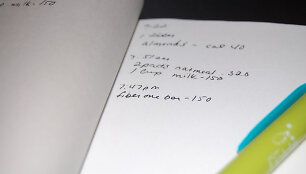 milk - 150
almonds - cal 40
2 packs oatmeal - 320
1 cup milk - 150
7:47pm
fiber one bar - 150